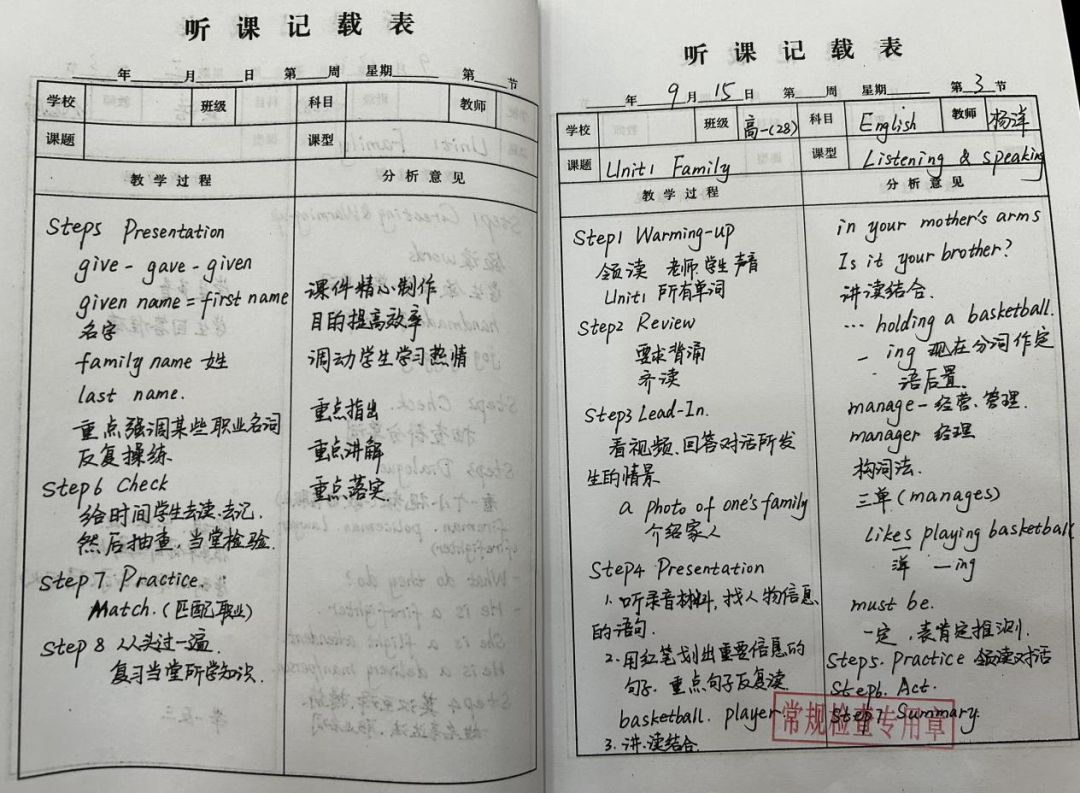 听课记载表
年 月 日 第 周 星期 第 节
学校 班级 科目 教师
课题 课型
教学过程 分析意见
Step5 Presentation
give - gave - given
given name = first name
名字
family name 姓
last name.
重点强调某些职业名词
反复操练.
Step6 Check
给时间学生去读.去记.
然后抽查.当堂检验.
Step 7. Practice.
Match.(匹配职业)
Step 8 从头过一遍.
复习当堂所学知识.
课件精心制作
目的提高效率
调动学生学习热情
重点指出
重点讲解
重点落实.
听课记载表
年 9月 15日 第 周 星期 第 3 节
学校 班级 高一(28) 科目 English 教师 杨洋
课题 Unit1 Family 课型 Listening & speaking
教学过程 分析意见
Step1 Warming-up
领读 老师.学生声音
Unit1 所有单词
Step2 Review
要求背诵
齐读
Step3 Lead-In.
看视频.回答对话所发
生的情景
a photo of one's family
介绍家人
Step4 Presentation
1. 听录音材料,找人物信息
的语句.
2. 用红笔划出重要信息的
句子.重点句子反复读
basketball. player
3. 讲.读结合.
in your mother's arms
Is it your brother?
讲读结合.
... holding a basketball.
- ing 现在分词作定
语后置.
manage - 经营.管理.
manager 经理
构词法.
三单(manages)
Likes playing basketball
-ing
must be.
一定,表肯定推测.
Step5. Practice 领读对话
Step6. Act.
Step7 Summary.
常规检查专用章